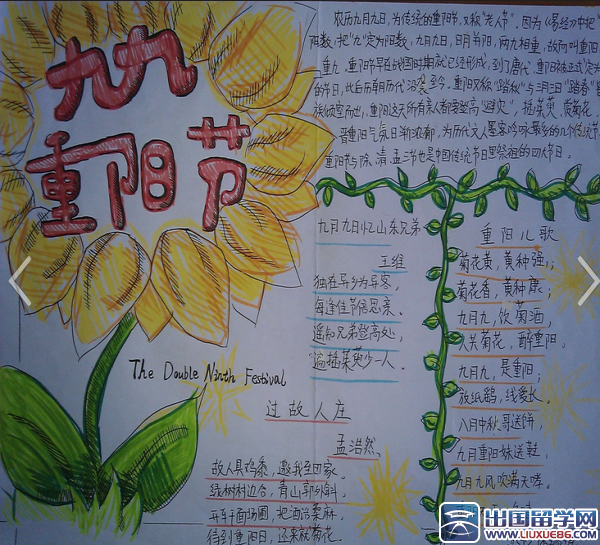 九九
重阳节
农历九月九日,为传统的重阳节,又称"老人节"。因为《易经》中把"
阳数,把"九"定为阳数,九月九日,日月并阳,两九相重,故而叫重阳
重九,重阳节早在战国时期就已经形成,到了唐代,重阳被正式定为
的节日,此后历朝历代沿袭至今。重阳又称"踏秋"与三月三日"踏春"
族倾室而出,重阳这天所有亲人都要登高"避灾",插茱萸,赏菊花。
重阳节与除、清、盂三节也是中国传统节日里祭祖的四大节日。
九月九日忆山东兄弟
王维
独在异乡为异客,
每逢佳节倍思亲。
遥知兄弟登高处,
遍插茱萸少一人。
The Double Ninth Festival
过故人庄
孟浩然
故人具鸡黍,邀我至田家。
绿树村边合,青山郭外斜。
开轩面场圃,把酒话桑麻。
待到重阳日,还来就菊花。
重阳儿歌
菊花黄,黄种强;
菊花香,黄种康;
九月九,饮菊酒,
人共菊花,醉重阳。
九月九,是重阳;
放纸鹞,线爱长。
八月中秋哥送饼,
九月重阳妹送鞋,
九月九风吹满天哮。
出国留学网
WWW.LIUXUE86.COM